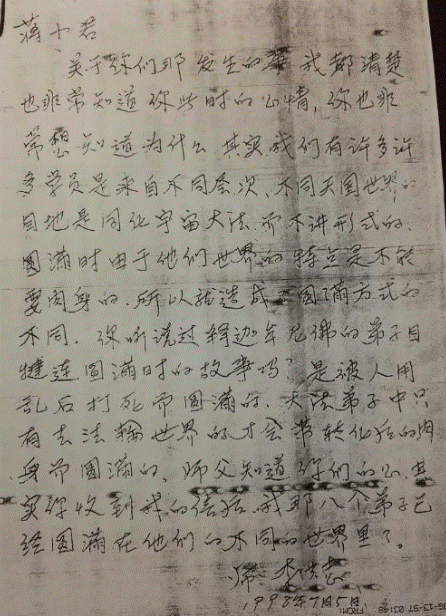 蒲小君
关于你们那发生的事我都清楚
也非常知道你此时的心情，你也非
常想知道为什么 其实我们有许多许
多学员是来自不同层次、不同天国世界
目地是同化宇宙大法，而不讲形式的、
圆满时由于他们世界的特点是不能
要肉身的、所以就造成 圆满方式的
不同. 你听说过释迦牟尼佛的弟子目
犍连圆满时的故事吗？是被人用
乱石打死而圆满的. 大法弟子中只
有去法轮世界的才会带转化后的肉
身而圆满的、师父知道你们的心.其
实你收到我的信后.我那八个弟子已
经圆满在他们的不同的世界里了。
师：李洪志
1998年7月5日
FROM: